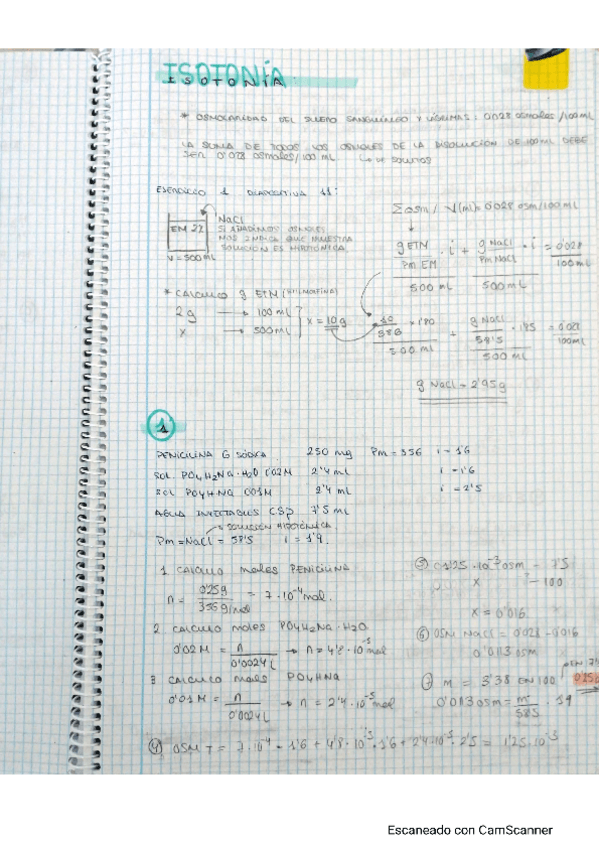 ISOTONÍA
* OSMOLARIDAD DEL SUERO SANGUÍNEO Y LÁGRIMAS: 0'028 osmoles/100mL
LA SUMA DE TODOS LOS OSMOLES DE LA DISOLUCIÓN DE 100 mL DEBE
SER 0'028 osmoles/100 mL
EJERCICIO 1 DIAPOSITIVA 11:
Σosm / V(mL) = 0'028 osm/100mL
NaCl
EM 2%
SI AÑADIMOS OSMOLES
NOS INDICA QUE NUESTRA
SOLUCIÓN ES HIPOTÓNICA
V = 500mL
g ETM / Pm EM · i / 500 mL + g NaCl / Pm NaCl · i / 500mL = 0'028 / 100mL
* CÁLCULO g ETM
2g → 100mL
x → 500mL
x = 10g
10 / 386 · 1'80 / 500 mL + g NaCl / 58'5 · 1'85 / 500 mL = 0'028 / 100mL
g NaCl = 2'95g
1
PENICILINA G SÓDICA 250 mg Pm = 356 i = 1'6
SOL. PO4H2Na·H2O 0'02M 2'4 mL i = 1'6
SOL PO4HNa 0'01M 2'4 mL i = 2'5
AGUA INYECTABLES CSP 7'5 mL
SOLUCIÓN HIPOTÓNICA
Pm = NaCl = 58'5 i = 1'9
1 CÁLCULO moles PENICILINA
n = 0'25g / 356 g/mol = 7·10⁻⁴ mol.
2 CÁLCULO moles PO4H2Na·H2O
0'02 M = n / 0'0024 L → n = 4'8·10⁻⁵ mol
3 CÁLCULO moles PO4HNa
0'01 M = n / 0'0024 L → n = 2'4·10⁻⁵ mol
④ OSM T = 7·10⁻⁴ · 1'6 + 4'8·10⁻⁵ · 1'6 + 2'4·10⁻⁵ · 2'5 = 1'25·10⁻³
⑤ 0'125·10⁻³ osm - 7'5
x - 100
x = 0'016
⑥ OSM NaCl = 0'028 - 0'016
0'0113 osm
⑦ m = 3'38 EN 100
0'0113 osm = m / 58'5 · 1'9
Escaneado con CamScanner